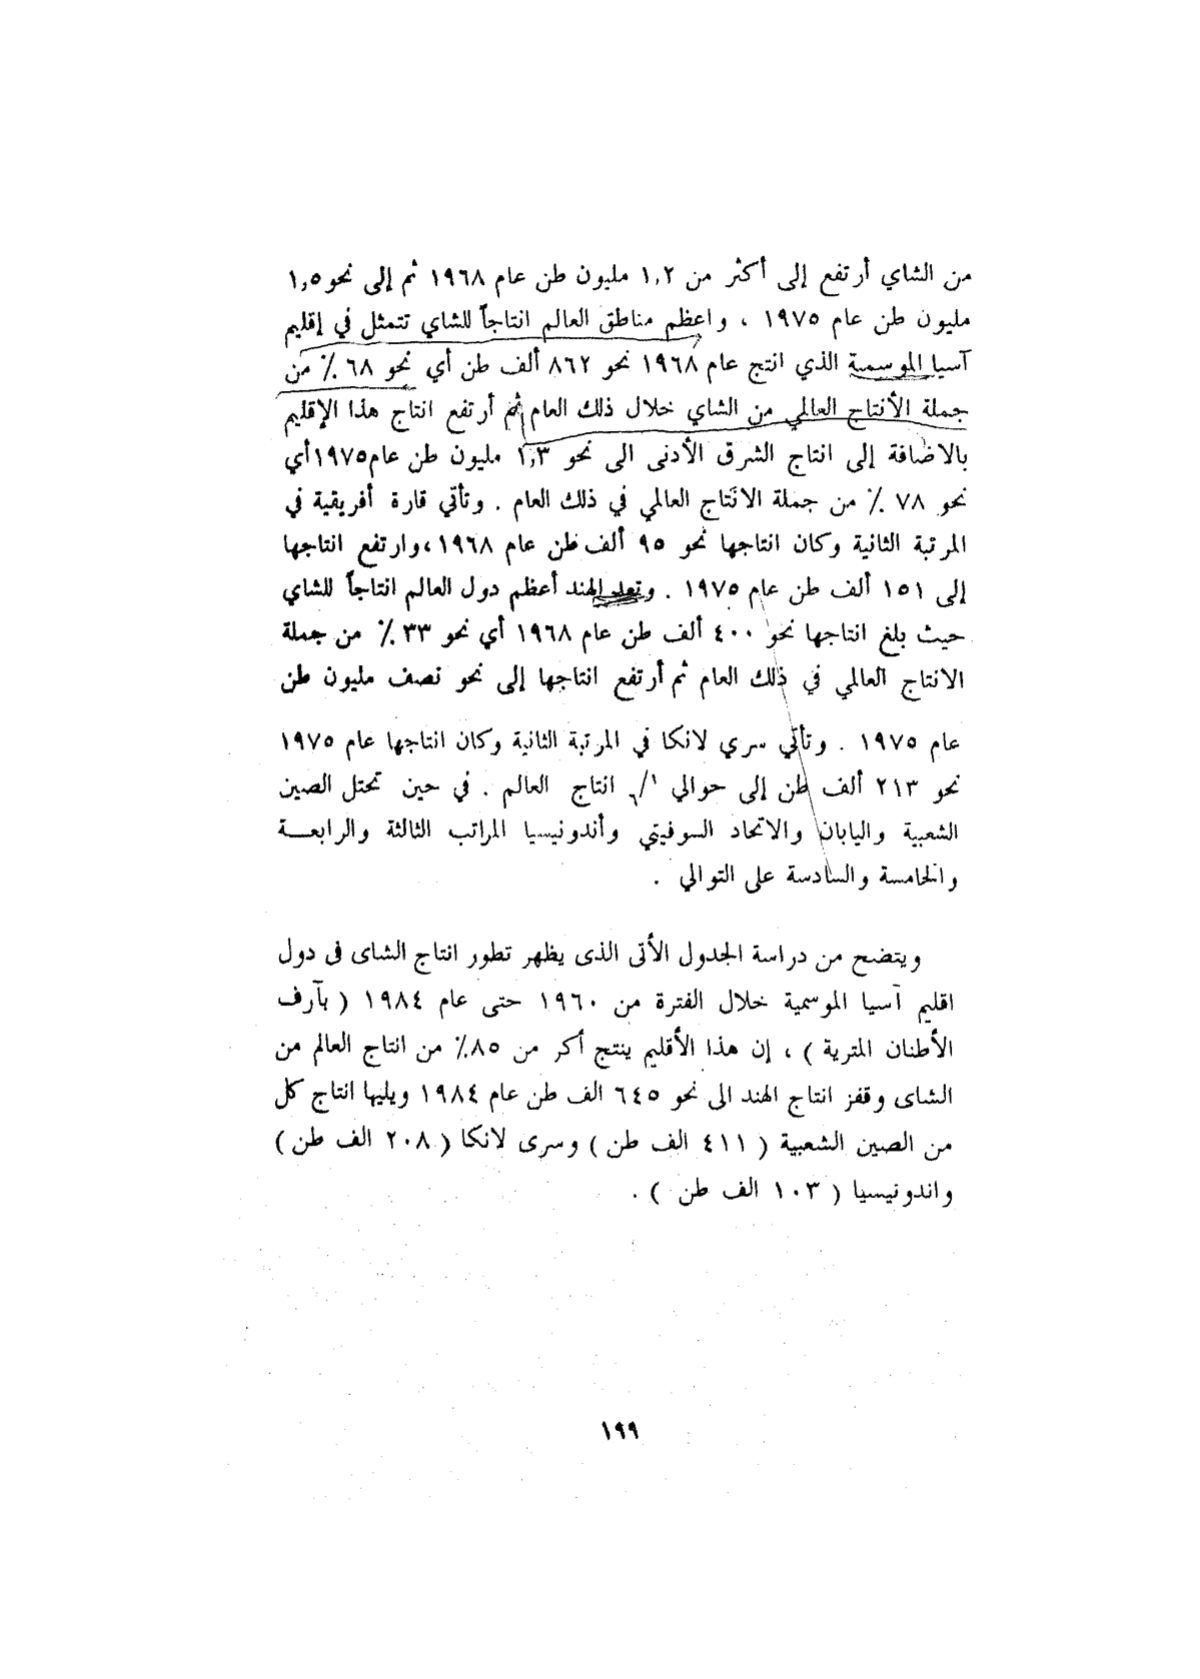 من الشاي أرتفع إلى أكثر من ١,٢ مليون طن عام ١٩٦٨ ثم إلى نحو ١,٥
مليون طن عام ١٩٧٥ ، واعظم مناطق العالم انتاجاً للشاي تتمثل في إقليم
آسيا الموسمية الذي انتج عام ١٩٦٨ نحو ٨٦٢ ألف طن أي نحو ٦٨ ٪ من
جملة الأنتاج العالمي من الشاي خلال ذلك العام ثم أرتفع انتاج هذا الإقليم
بالاضافة إلى انتاج الشرق الأدنى الى نحو ١,٣ مليون طن عام ١٩٧٥ أي
نحو ٧٨ ٪ من جملة الانتاج العالمي في ذلك العام . وتأتي قارة أفريقية في
المرتبة الثانية وكان انتاجها نحو ٩٥ ألف طن عام ١٩٦٨ ، وارتفع انتاجها
إلى ١٥١ ألف طن عام ١٩٧٥ . وتعد الهند أعظم دول العالم انتاجاً للشاي
حيث بلغ انتاجها نحو ٤٠٠ ألف طن عام ١٩٦٨ أي نحو ٣٣ ٪ من جملة
الانتاج العالمي في ذلك العام ثم أرتفع انتاجها إلى نحو نصف مليون طن
عام ١٩٧٥ . وتأتي سري لانكا في المرتبة الثانية وكان انتاجها عام ١٩٧٥
نحو ٢١٣ ألف طن إلى حوالي ١/٦ انتاج العالم . في حين تحتل الصين
الشعبية واليابان والاتحاد السوفيتي وأندونيسيا المراتب الثالثة والرابعـــة
والخامسة والسادسة على التوالي .
ويتضح من دراسة الجدول الأتى الذى يظهر تطور انتاج الشاى فى دول
اقليم آسيا الموسمية خلال الفترة من ١٩٦٠ حتى عام ١٩٨٤ ( بآرف
الأطنان المترية ) ، إن هذا الأقليم ينتج أكر من ٨٥٪ من انتاج العالم من
الشاى وقفز انتاج الهند الى نحو ٦٤٥ الف طن عام ١٩٨٤ ويليها انتاج كل
من الصين الشعبية ( ٤١١ الف طن ) وسرى لانكا ( ٢٠٨ الف طن )
واندونيسيا ( ١٠٣ الف طن ) .
١٩٩